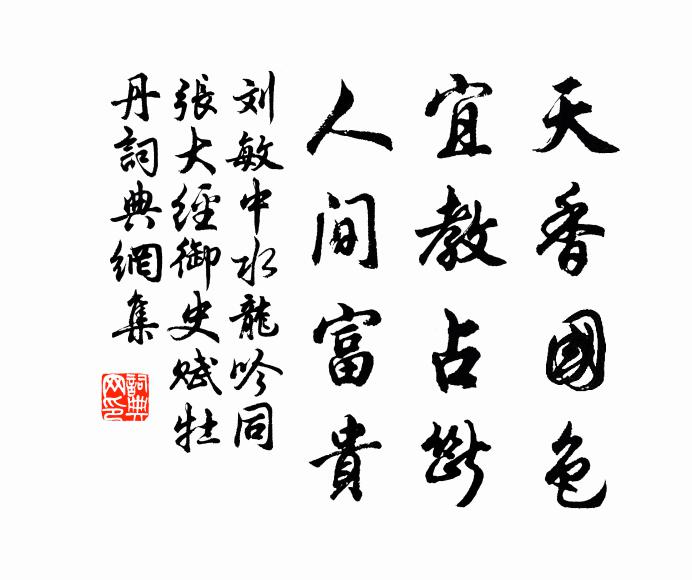 天香國色
宜教占斷
人間富貴
刘敏中水龍吟同
張大經御史赋牡
丹詞典網集
詞典
网印